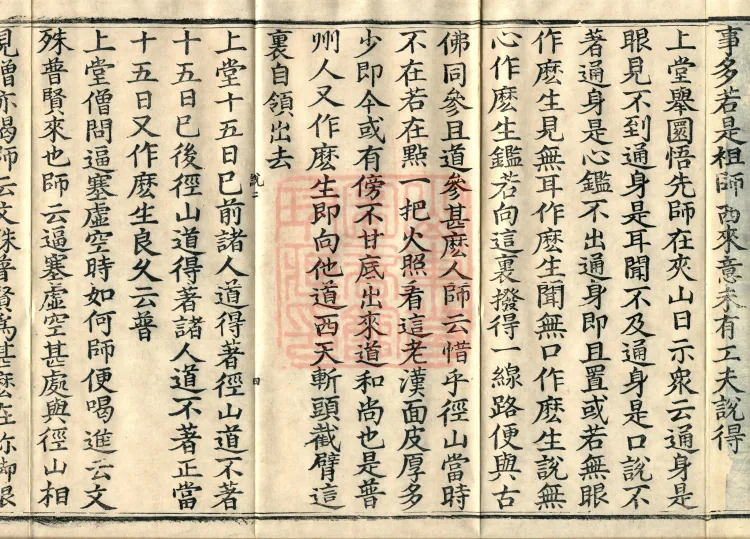 事多若是祖師西來意未有工夫說得
上堂舉圜悟先師在夾山日示衆云通身是
眼見不到通身是耳聞不及通身是口說不
著通身是心鑑不出通身即且置或若無眼
作麽生見無耳作麽生聞無口作麽生說無
心作麽生鑑若向這裏撥得一線路便與古
佛同參且道參甚麽人師云惜乎徑山當時
不在若在點一把火照看這老漢面皮厚多
少即今或有傍不甘底出來道和尚也是普
州人又作麽生即向他道西天斬頭截臂這
裏自領出去
說二
四
上堂十五日已前諸人道得著徑山道不著
十五日已後徑山道得著諸人道不著正當
十五日又作麽生良久云普
上堂僧問逼塞虛空時如何師便喝進云文
殊普賢來也師云逼塞虛空甚處與徑山相
見僧亦喝師云文殊普賢為甚麽在你脚跟